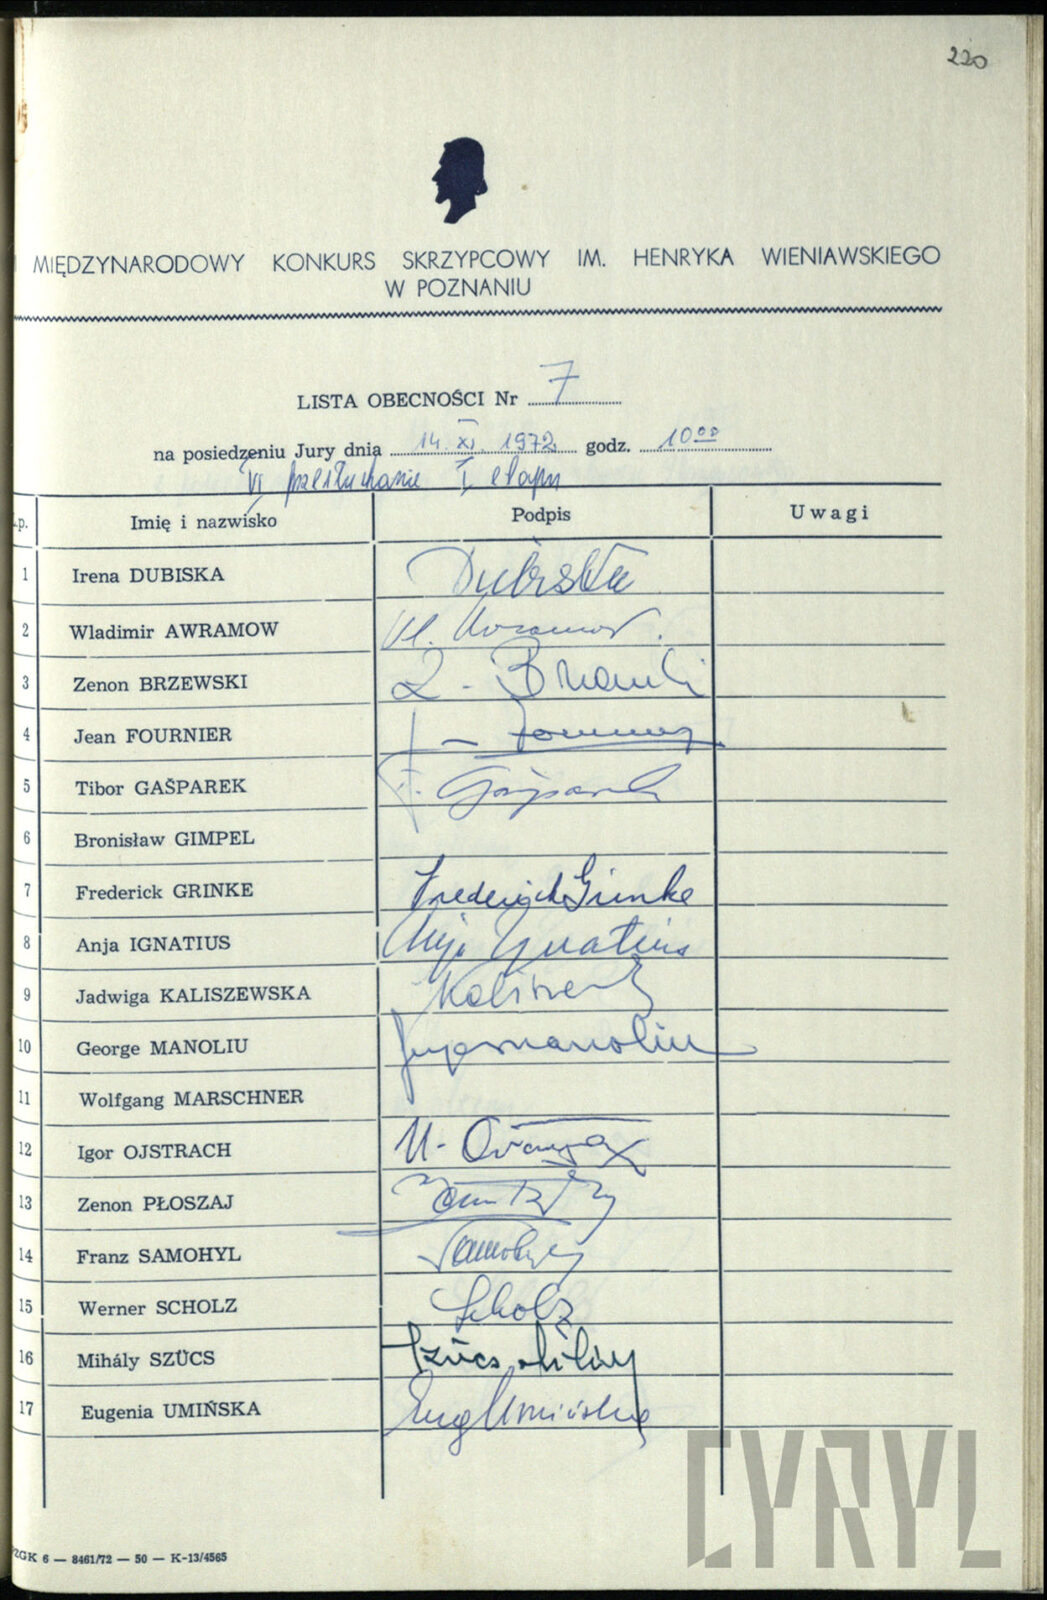 220
MIĘDZYNARODOWY KONKURS SKRZYPCOWY IM. HENRYKA WIENIAWSKIEGO
W POZNANIU
LISTA OBECNOŚCI Nr 7
na posiedzeniu Jury dnia 14. XI. 1972 godz. 10⁰⁰
VI przesłuchanie I etapu
Lp. Imię i nazwisko Podpis Uwagi
1 Irena DUBISKA Dubiska
2 Wladimir AWRAMOW Wl.
3 Zenon BRZEWSKI Z.
4 Jean FOURNIER J -
5 Tibor GAŠPAREK T. Gašparek
6 Bronisław GIMPEL
7 Frederick GRINKE Frederick Grinke
8 Anja IGNATIUS Anja Ignatius
9 Jadwiga KALISZEWSKA
10 George MANOLIU Manoliu
11 Wolfgang MARSCHNER
12 Igor OJSTRACH И.
13 Zenon PŁOSZAJ
14 Franz SAMOHYL Samohyl
15 Werner SCHOLZ Scholz
16 Mihály SZÜCS Szücs Mihály
17 Eugenia UMIŃSKA Eug Umińska
ZGK 6 — 8461/72 — 50 — K-13/4565
CYRYL